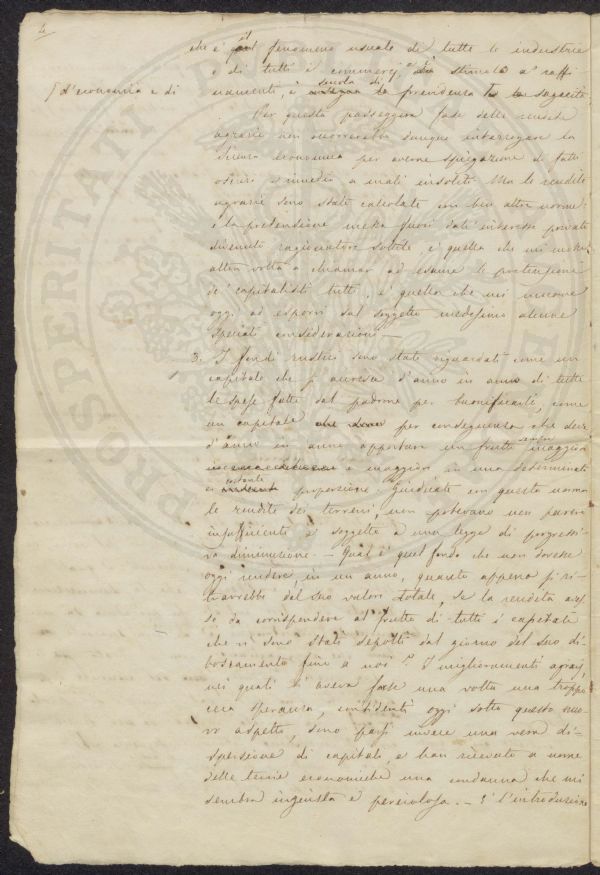 4
che è il fenomeno usuale di tutte le industrie
e di tutti i commerci, è stimolo a raffi-
namenti, è scuola di previdenza e di sagacità.
ſ d'economia e di
Per questa passeggera fase delle cose
agrarie non occorrerebbe dunque interrogare la
Scienza economica per averne spiegazione di fatti
oscuri e rimedio a mali insoliti. Ma le rendite
agrarie sono state calcolate con ben altre norme:
e la pretensione messa fuori dall'interesse privato
divenuto ragionatore sottile, è quella che mi mosse
altra volta a chiamar ad esame le pretensione
de' capitalisti tutti, è quella che mi muove
oggi ad esporvi sul soggetto medesimo alcune
speciali considerazioni —
3. I fondi rustici sono stati riguardati come un
capitale che si accresce d'anno in anno di tutte
le spese fatte dal padrone per buonificarli, come
un capitale per conseguenza che deve
d'anno in anno apportare un frutto sempre maggiore
e maggiore in una determinata
e costante proporzione. Giudicate con questa norma
le rendite dei terreni, non potevano non parere
insufficienti e soggette a una legge di progressi-
va diminuzione — Qual è quel fondo che non dovesse
oggi rendere, in un anno, quanto appena si ri-
trarrebbe dal suo valore totale, se la rendita aves-
se da corrispondere al frutto di tutti i capitali
che vi sono stati depositi dal giorno del suo di-
boscamento fino a noi? I miglioramenti agrarj,
nei quali si aveva forse una volta una troppo
cieca speranza, considerati oggi sotto questo nuo-
vo aspetto, sono parsi invece una vera di-
spersione di capitale, e han ricevuto a nome
delle teorie economiche una condanna che mi
sembra ingiusta e pericolosa. — È l'introduzione
PROSPERITATI PUBLICAE